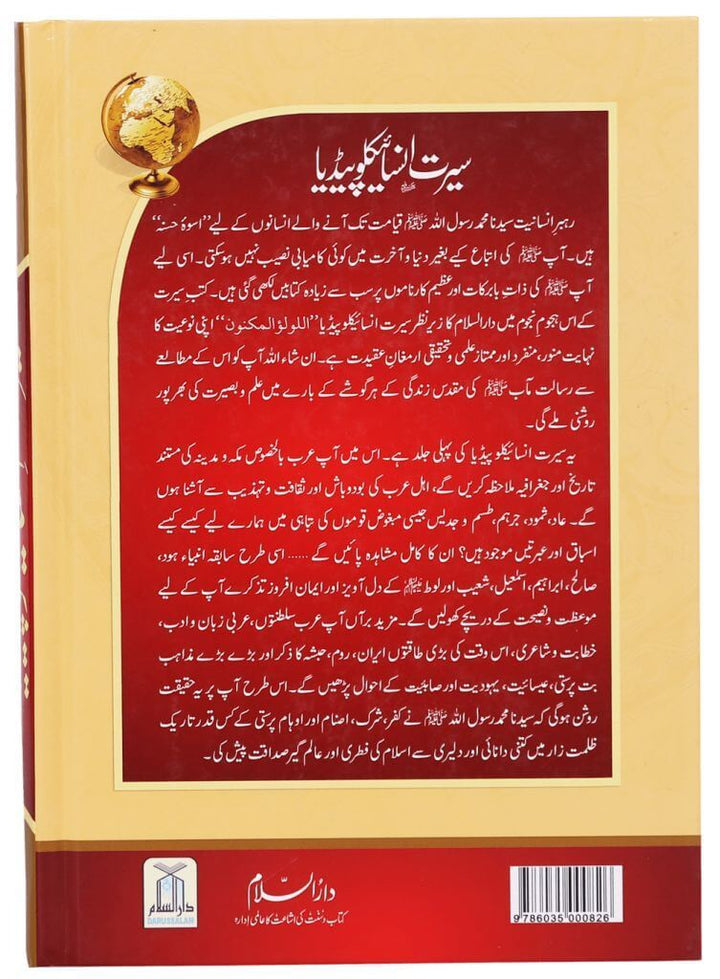 سیرت انسائیکلوپیڈیا
ﷺ
رہبرِ انسانیت سیدنا محمد رسول اللہ ﷺ قیامت تک آنے والے انسانوں کے لیے ’’اسوۂ حسنہ‘‘
ہیں۔ آپ ﷺ کی اتباع کے بغیر دنیا و آخرت میں کوئی کامیابی نصیب نہیں ہوسکتی۔ اسی لیے
آپ ﷺ کی ذاتِ بابرکات اور عظیم کارناموں پر سب سے زیادہ کتابیں لکھی گئی ہیں۔ کتب سیرت
کے اس ہجومِ نجوم میں دارالسلام کا زیرِ نظر سیرت انسائیکلوپیڈیا ’’اللولؤ المکنون‘‘ اپنی نوعیت کا
نہایت منور، منفرد اور ممتاز علمی و تحقیقی ارمغانِ عقیدت ہے۔ ان شاء اللہ آپ کو اس کے مطالعے
سے رسالت مآب ﷺ کی مقدس زندگی کے ہر گوشے کے بارے میں علم و بصیرت کی بھرپور
روشنی ملے گی۔
یہ سیرت انسائیکلوپیڈیا کی پہلی جلد ہے۔ اس میں آپ عرب بالخصوص مکہ و مدینہ کی مستند
تاریخ اور جغرافیہ ملاحظہ کریں گے، اہل عرب کی بودوباش اور ثقافت و تہذیب سے آشنا ہوں
گے۔ عاد، ثمود، جرہم، طسم و جدیس جیسی مبغوض قوموں کی تباہی میں ہمارے لیے کیسے کیسے
اسباق اور عبرتیں موجود ہیں؟ ان کا کامل مشاہدہ پائیں گے ...... اسی طرح سابقہ انبیاء ہود،
صالح، ابراہیم، اسمٰعیل، شعیب اور لوط ﷩ کے دل آویز اور ایمان افروز تذکرے آپ کے لیے
موعظت و نصیحت کے دریچے کھولیں گے۔ مزید برآں آپ عرب سلطنتوں، عربی زبان و ادب،
خطابت و شاعری، اس وقت کی بڑی طاقتوں ایران، روم، حبشہ کا ذکر اور بڑے بڑے مذاہب
بت پرستی، عیسائیت، یہودیت اور صابئیت کے احوال پڑھیں گے۔ اس طرح آپ پر یہ حقیقت
روشن ہوگی کہ سیدنا محمد رسول اللہ ﷺ نے کفر، شرک، اصنام اور اوہام پرستی کے کس قدر تاریک
ظلمت زار میں کتنی دانائی اور دلیری سے اسلام کی فطری اور عالم گیر صداقت پیش کی۔
دارالسلام
DARUSSALAM
دارالسلام
کتاب و سنت کی اشاعت کا عالمی ادارہ
9 786035 000826